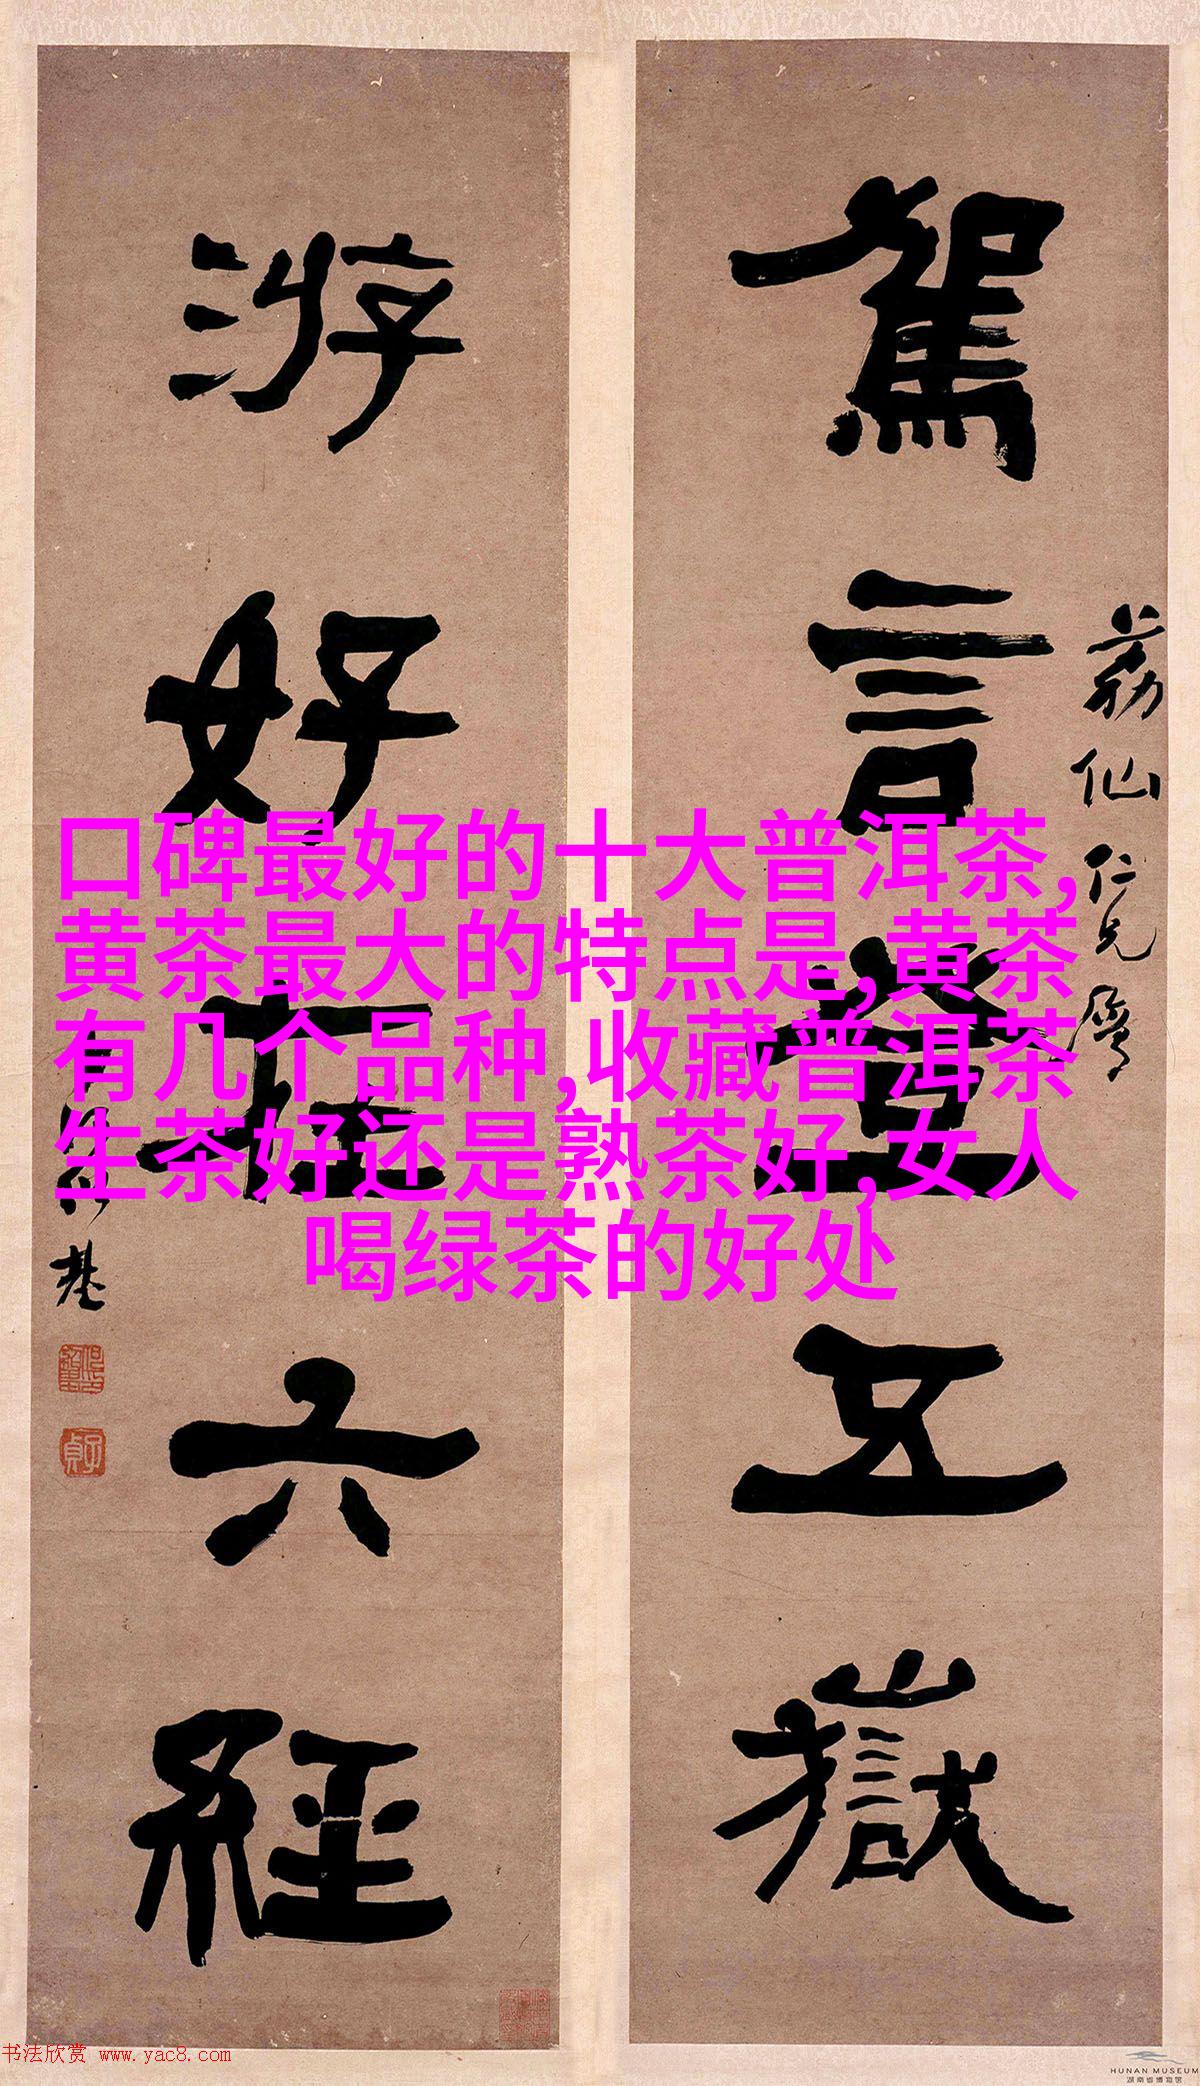 駕言登五嶽
荔仙仁兄属
游好在六經
何紹基
口碑最好的十大普洱茶,
黄茶最大的特点是,黄茶
有几个品种,收藏普洱茶
生茶好还是熟茶好,女人
喝绿茶的好处
书法欣赏 www.yac8.com
HUNAN MUSEUM
湖南省博物馆